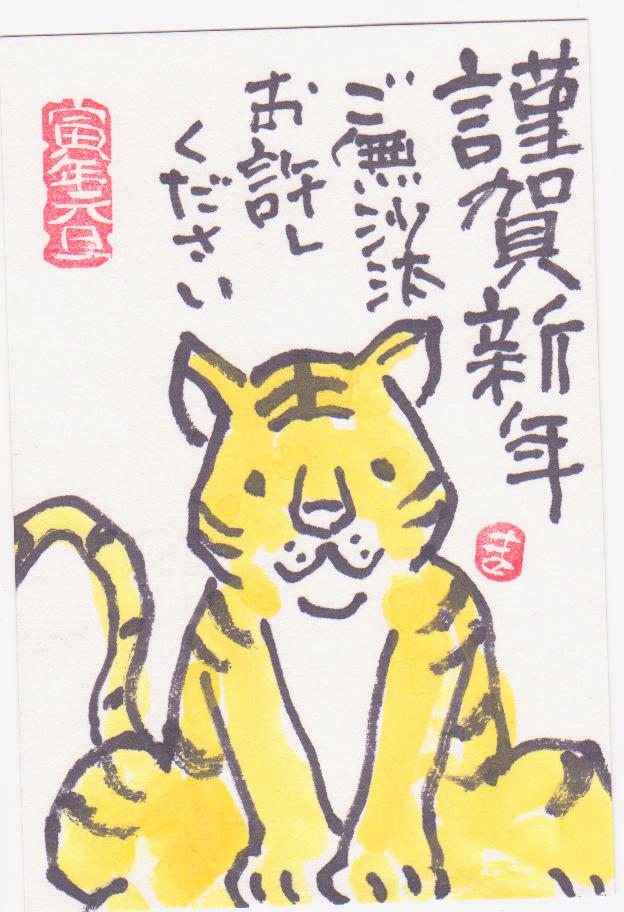 謹賀新年
ご無沙汰
お許し
ください
寅年元旦
ま